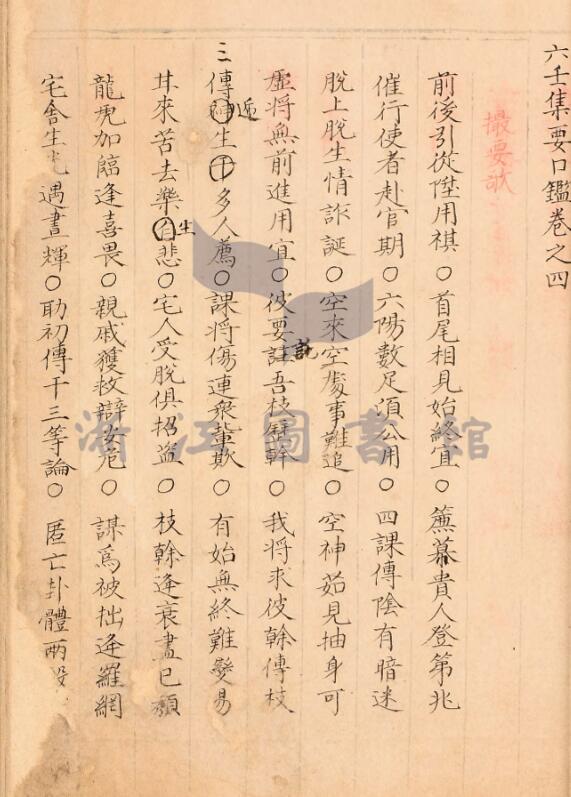 六壬集要口鑑卷之四
撮要歌
前後引從陞用祺○首尾相見始終宜○簾幕貴人登第兆
催行使者赴官期○六陽數足須公用○四課傳陰有暗迷
脫上脫生情詐誕○空來空處事難追○空神茹見抽身可
虛將無前進用宜○彼要託吾枝幹○我將求彼幹傳枝
三傳遞生干多人薦○課將傷連衆輩欺○有始無終難變易
廾來苦去樂生悲○宅人受脫俱招盜○枝幹逢衰盡已頹
龍虎加臨逢喜畏○親戚獲救辯安危○謀爲被拙逢羅網
宅舍生光遇晝輝○助初傳干三等論○匿亡卦體兩
浙江圖書館